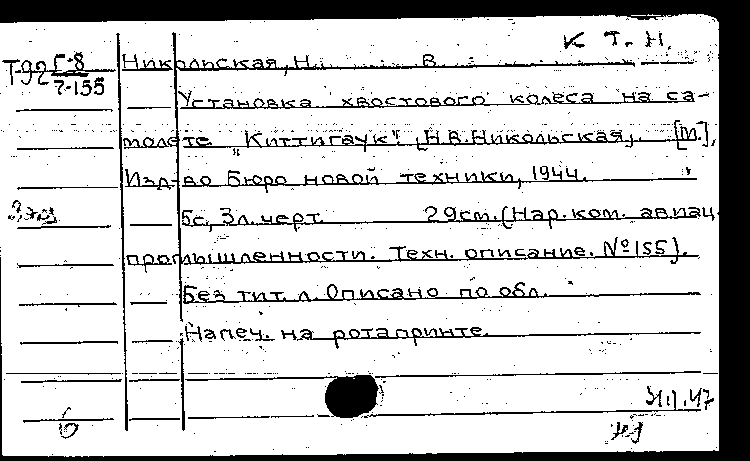 К Т. Н.
Т-92 Г-8
7-155
Никольская, Н. В.
Установка хвостового колеса на са-
молете "Киттигаук". [Н.В.Никольская]. [М.],
Изд-во Бюро новой техники, 1944.
3 экз
5с, 3л. черт. 29см. (Нар. ком. авиац.
промышленности. Техн. описание. №155).
Без тит. л. Описано по обл.
Напеч. на ротапринте.
6